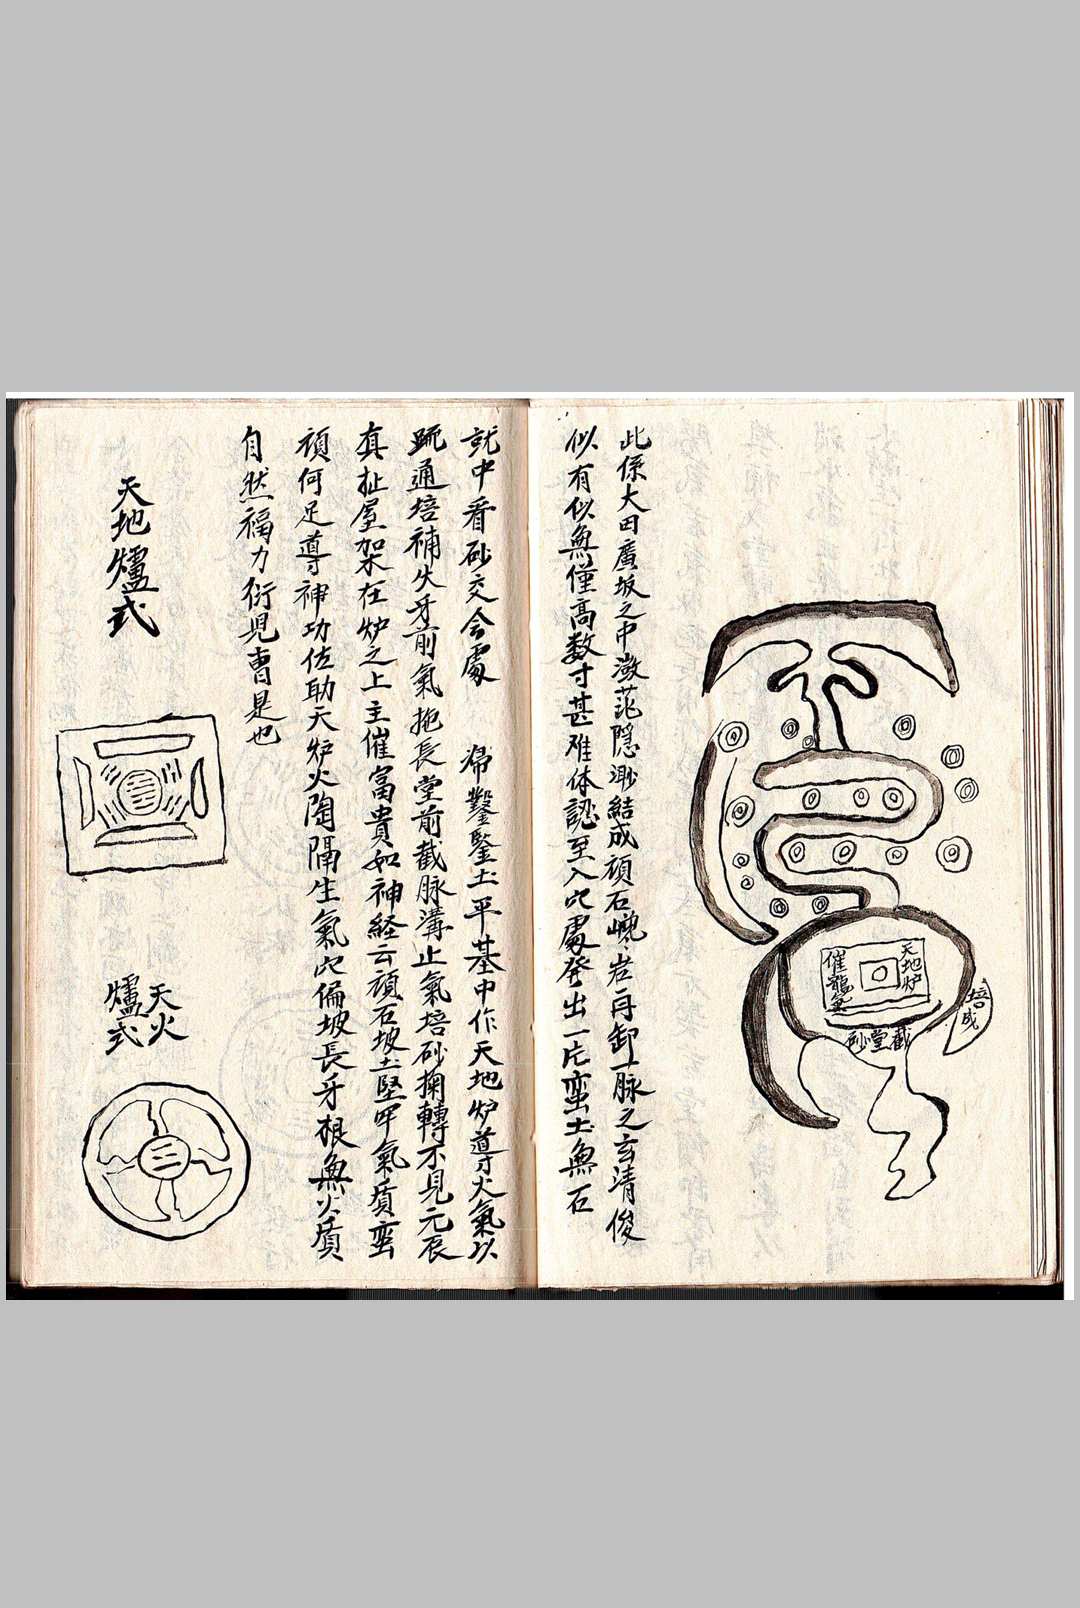 天地炉
催龍氣
培成
截堂砂
此係大田廣坂之中激茫隠渺結成頑石巉岩再卸一脉之玄清俊
似有似無僅高数寸甚难体認至入穴處発出一片蛮土無石
就中看砂交会處 帰鑿鑒土平基中作天地炉導火氣以
疏通培補失牙前氣拖長堂前截脉溝止氣培砂掬轉不見元辰
真扯屋架在炉之上主催富貴如神経云頑石坡土堅罕氣質蛮
頑何足導神功佐助天炉火陶隔生氣穴偏坡長牙根無火質
自然福力衍児曹是也
天地爐式
天火
爐式